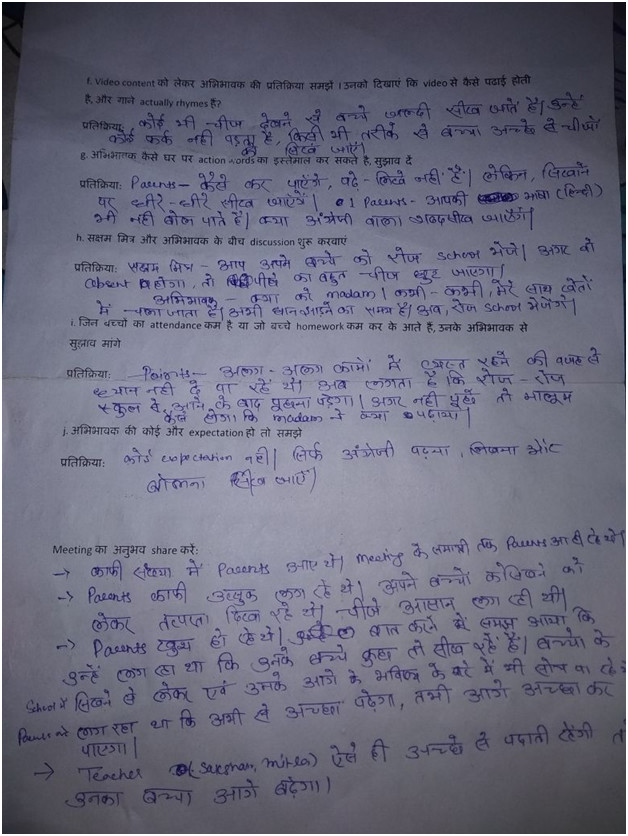 f. Video content को लेकर अभिभावक की प्रतिक्रिया समझें । उनको दिखाएं कि video से कैसे पढाई होती
है, और गाने actually rhymes हैं?
प्रतिक्रिया: कोई भी चीज देखने से बच्चे जल्दी सीख जाते हैं। उन्हें
कोई फर्क नहीं पड़ता है, किसी भी तरीके से बच्चा अच्छे से चीजों
को सिख जाएं।
g. अभिभावक कैसे घर पर action words का इस्तेमाल कर सकते है, सुझाव दें
प्रतिक्रिया: Parents- कैसे कर पाएँगे, पढ़े-लिखे नहीं हैं। लेकिन, सिखाने
पर धीरे-धीरे सीख जाएँगे। Parents- आपकी भाषा (हिन्दी)
भी नहीं बोल पाते हैं। क्या अंग्रेजी वाला शब्द सीख जाएँगे।
h. सक्षम मित्र और अभिभावक के बीच discussion शुरू करवाएं
प्रतिक्रिया: सक्षम मित्र - आप अपने बच्चे को रोज school भेजें। अगर वो
absent होगा, तो का बहुत चीज छूट जाएगा।
अभिभावक - क्या करे madam। कभी-कभी, मेरे साथ खेतों
में चला जाता है। अभी धान का समय है। अब, रोज school भेजेंगे।
i. जिन बच्चो का attendance कम है या जो बच्चे homework कम कर के आते हैं, उनके अभिभावक से
सुझाव मांगे
प्रतिक्रिया: अलग-अलग कामों में व्यस्त रहने की वजह से
ध्यान नहीं दे पा रहे थे। अब लगता है कि रोज-रोज
स्कूल से आने के बाद पूछना पड़ेगा। अगर नहीं पूछें तो मालूम
कैसे होगा कि madam ने क्या पढ़ाया।
j. अभिभावक की कोई और expectation हो तो समझें
प्रतिक्रिया: कोई expectation नहीं। सिर्फ अंग्रेजी पढ़ना, लिखना और
बोलना सिख जाएँ।
Meeting का अनुभव share करें:
→ काफी संख्या में Parents आए थे। meeting के समाप्ती तक Parents आ ही रहे थे।
→ Parents काफी उत्सुक लग रहे थे। अपने बच्चों को सिखने को
लेकर तत्परता दिख रहे थे। चीजें आसान लग रही थी।
→ Parents खुश हो रहे थे। बात करने में समझ आया कि
उन्हें लग रहा था कि उनके बच्चे कुछ तो सीख रहे हैं। बच्चों के
School में सिखने से लेकर एवं उनके आगे के भविष्य के बारे में भी सोच पा रहे थे
Parents को लग रहा था कि अभी से अच्छा पढ़ेगा, तभी आगे अच्छा कर
पाएगा।
→ Teacher (Saksham, mitra) ऐसे ही अच्छे से पढ़ाती रहेंगी तो
उनका बच्चा आगे बढ़ेगा।